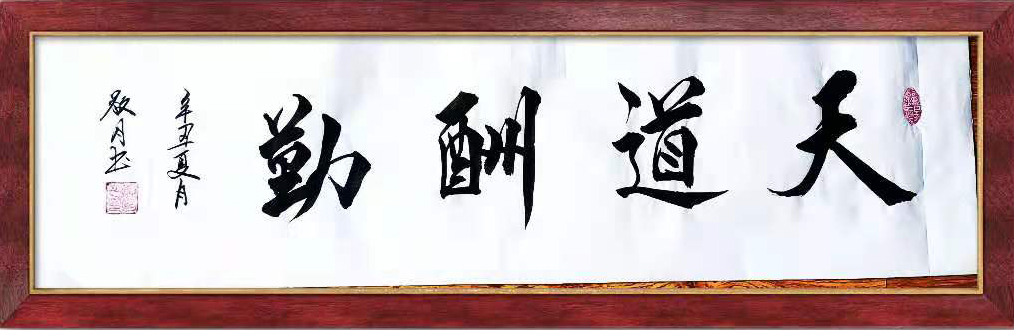 天道酬勤
辛丑夏月
敬月书